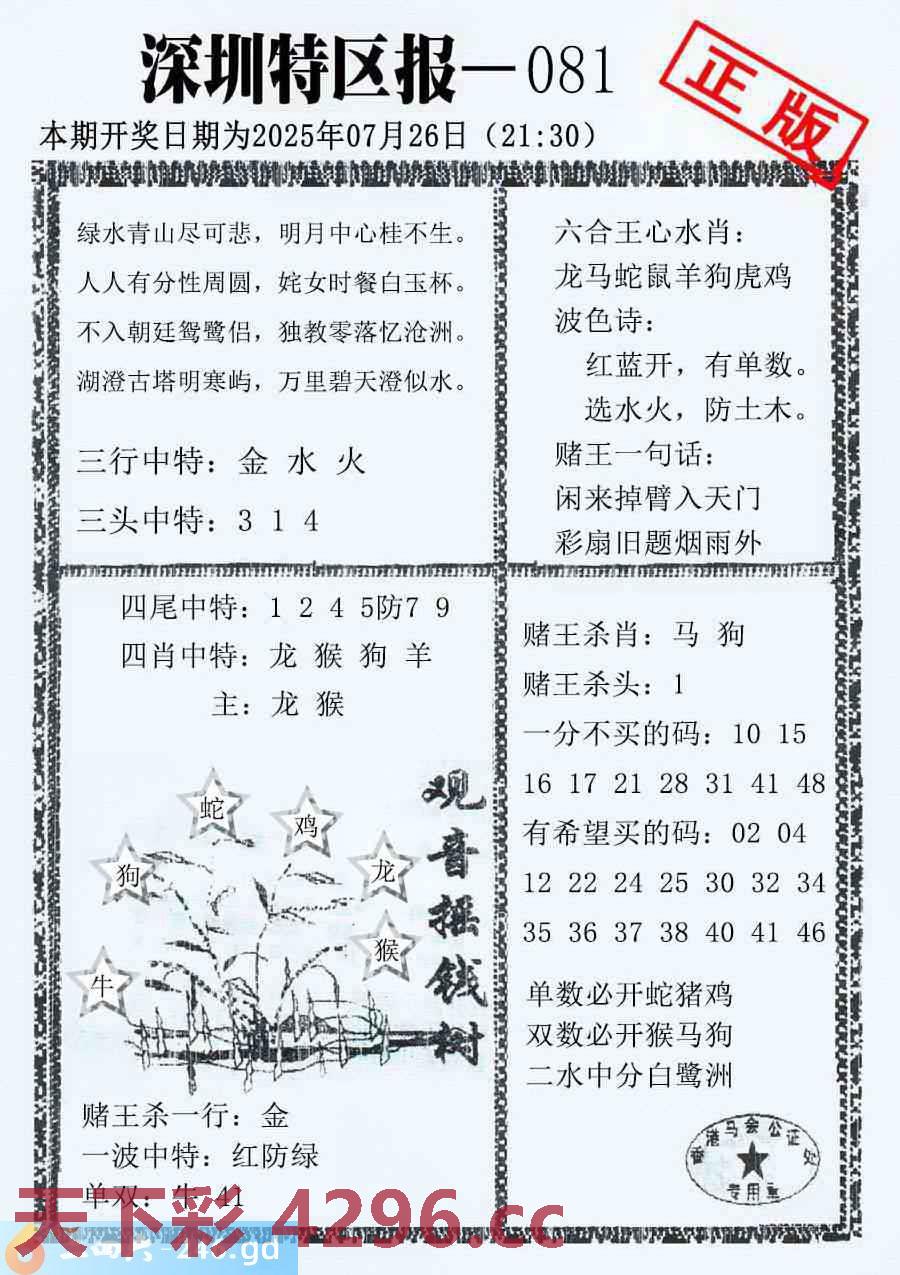 深圳特区报—081
正版
本期开奖日期为2025年07月26日（21:30）
绿水青山尽可悲，明月中心桂不生。
人人有分性周圆，姹女时餐白玉杯。
不入朝廷鸳鹭侣，独教零落忆沧洲。
湖澄古塔明寒屿，万里碧天澄似水。
三行中特：金 水 火
三头中特：3 1 4
六合王心水肖：
龙马蛇鼠羊狗虎鸡
波色诗：
红蓝开，有单数。
选水火，防土木。
赌王一句话：
闲来掉臂入天门
彩扇旧题烟雨外
四尾中特：1 2 4 5防7 9
四肖中特：龙 猴 狗 羊
主：龙 猴
观音摇钱树
蛇
鸡
狗
龙
猴
牛
赌王杀一行：金
一波中特：红防绿
单双：牛 41
赌王杀肖：马 狗
赌王杀头：1
一分不买的码：10 15
16 17 21 28 31 41 48
有希望买的码：02 04
12 22 24 25 30 32 34
35 36 37 38 40 41 46
单数必开蛇猪鸡
双数必开猴马狗
二水中分白鹭洲
香港马会公证处
专用章
天下彩 4296.cc